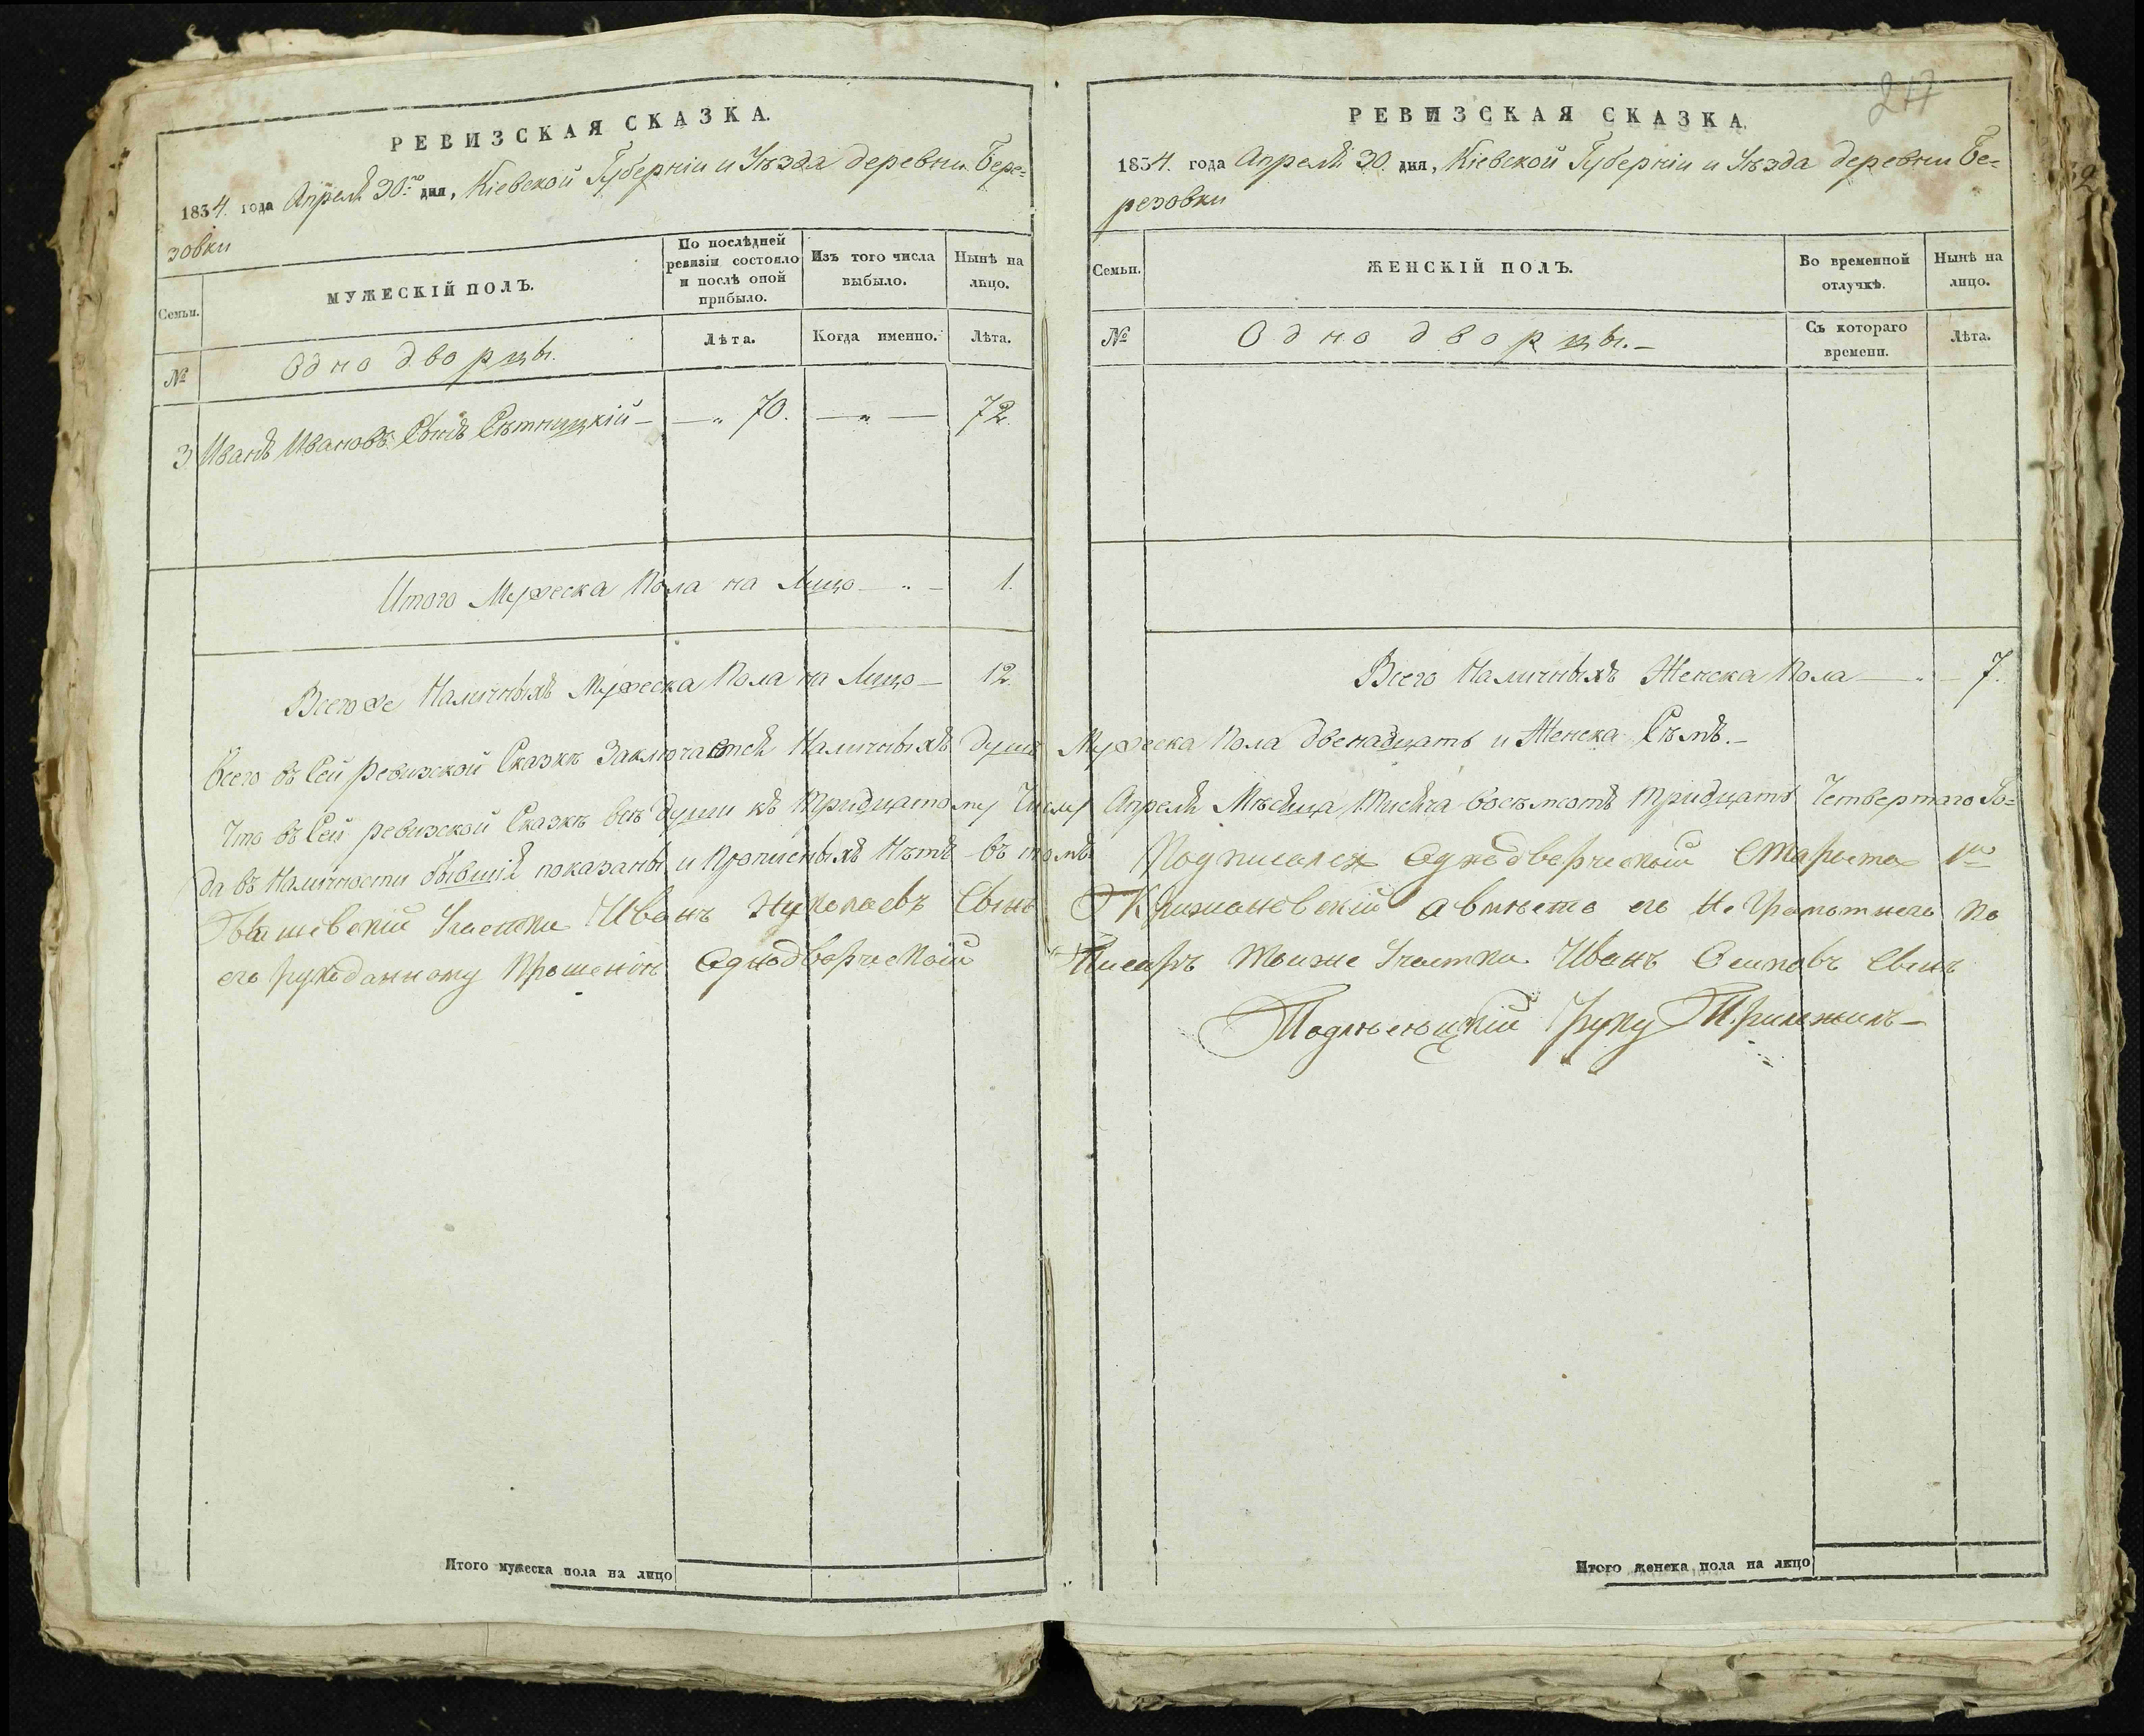 РЕВИЗСКАЯ СКАЗКА.
1834. года Апреля 30.го дня, Кіевской Губерніи и Уѣзда деревни Бере=
зовки
Семьи.
МУЖЕСКІЙ ПОЛЪ.
По послѣдней ревизіи состояло и послѣ оной прибыло.
Изъ того числа выбыло.
Нынѣ на лицо.
№
Однодворцы.
Лѣта.
Когда именно.
Лѣта.
3 Иванъ Ивановъ Сынъ Сѣтницкій — — „ 70. — „ — 72.
Итого Мужеска Пола на Лицо — „ — 1.
Всего же Наличныхъ Мужеска Пола на Лицо — 12
Итого мужеска пола на лицо
217
РЕВИЗСКАЯ СКАЗКА.
1834. года Апреля 30. дня, Кіевской Губерніи и Уѣзда деревни Бе=
резовки
Семьи.
ЖЕНСКІЙ ПОЛЪ.
Во временной отлучкѣ.
Нынѣ на лицо.
№
Однодворцы. —
Съ котораго времени.
Лѣта.
Всего Наличныхъ Женска Пола — „ — 7.
Всего въ Сей ревизской Сказкѣ Заключается Наличныхъ душъ Мужеска Пола двенадцать и Женска Сѣмъ. —
Что въ Сей ревизской Сказкѣ всѣ души къ Тридцатому Числу Апреля Мѣсяца Тысяча восѣмсотъ Тридцать Четвертаго Го=
да въ Наличности бывшія показаны и Прописныхъ Нѣтъ въ томъ Подписался Однодворческій Староста 1го
Участка Иванъ Сынъ Крижановскій а вмѣсто его Не Грамотнего по
его рукоданному Прошенію Однодворческій Писарь Тоиже Участка Иванъ Осиповъ Сынъ
Руку Приложилъ —
Итого женска пола на лицо